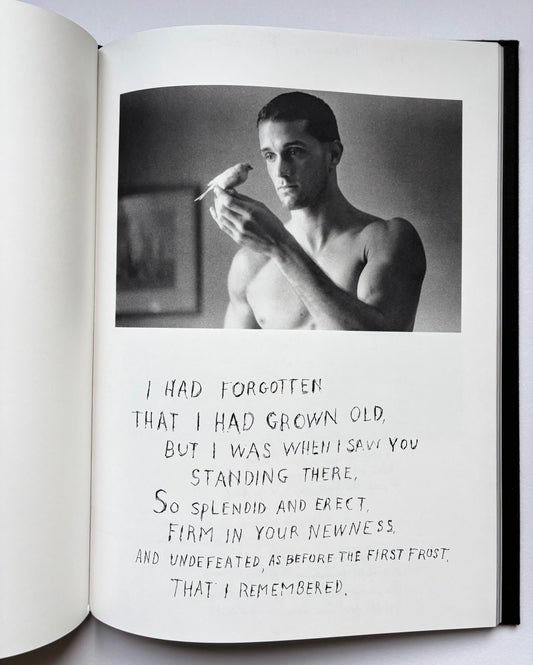 I HAD FORGOTTEN
THAT I HAD GROWN OLD,
BUT I WAS WHEN I SAW YOU
STANDING THERE,
SO SPLENDID AND ERECT,
FIRM IN YOUR NEWNESS,
AND UNDEFEATED, AS BEFORE THE FIRST FROST,
THAT I REMEMBERED.